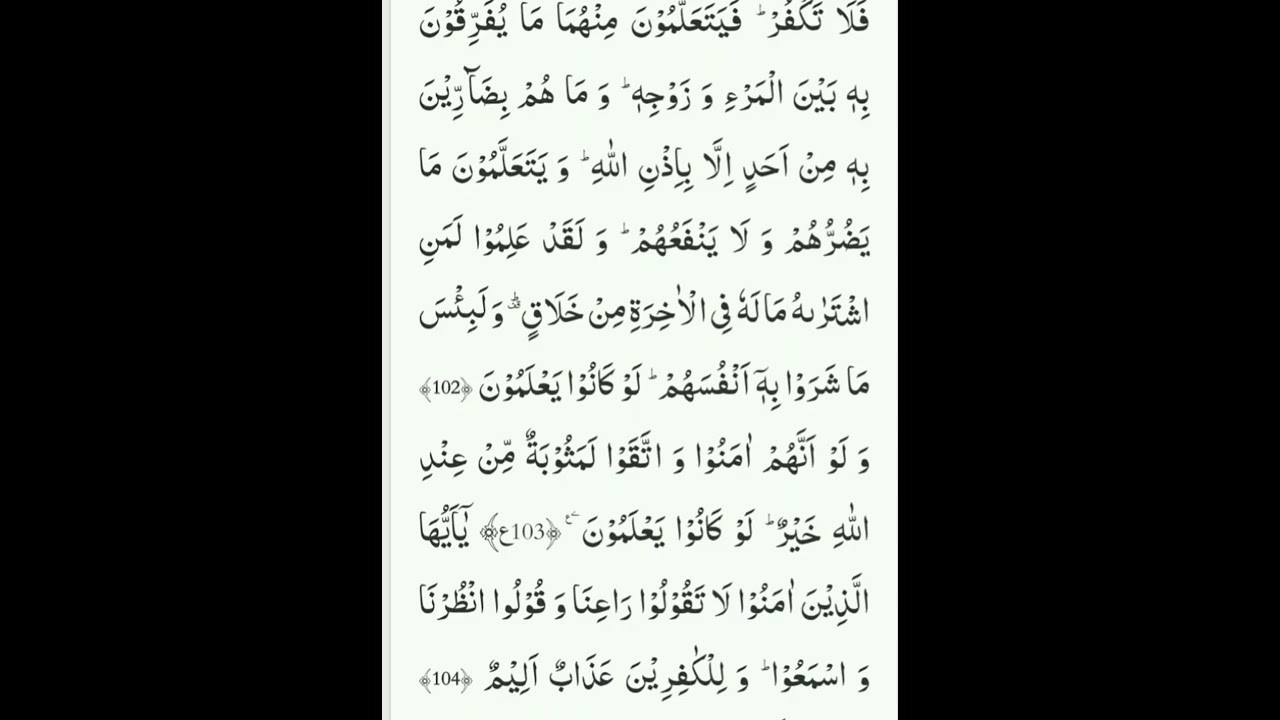 فَلَا تَكْفُرْ ؕ فَيَتَعَلَّمُوْنَ مِنْهُمَا مَا يُفَرِّقُوْنَ
بِهٖ بَيْنَ الْمَرْءِ وَ زَوْجِهٖ ؕ وَ مَا هُمْ بِضَآرِّيْنَ
بِهٖ مِنْ اَحَدٍ اِلَّا بِاِذْنِ اللّٰهِ ؕ وَ يَتَعَلَّمُوْنَ مَا
يَضُرُّهُمْ وَ لَا يَنْفَعُهُمْ ؕ وَ لَقَدْ عَلِمُوْا لَمَنِ
اشْتَرٰىهُ مَا لَهٗ فِی الْاٰخِرَةِ مِنْ خَلَاقٍ ۟ؕ وَ لَبِئْسَ
مَا شَرَوْا بِهٖۤ اَنْفُسَهُمْ ؕ لَوْ كَانُوْا يَعْلَمُوْنَ ﴿102﴾
وَ لَوْ اَنَّهُمْ اٰمَنُوْا وَ اتَّقَوْا لَمَثُوْبَةٌ مِّنْ عِنْدِ
اللّٰهِ خَيْرٌ ؕ لَوْ كَانُوْا يَعْلَمُوْنَ ﴿103ع﴾ يٰۤاَيُّهَا
الَّذِيْنَ اٰمَنُوْا لَا تَقُوْلُوْا رَاعِنَا وَ قُوْلُوا انْظُرْنَا
وَ اسْمَعُوْا ؕ وَ لِلْكٰفِرِيْنَ عَذَابٌ اَلِيْمٌ ﴿104﴾